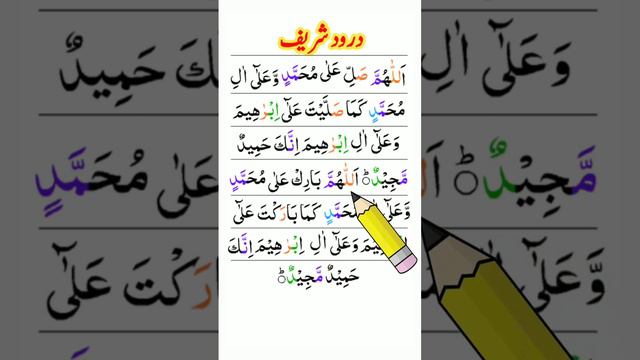 درود شریف
اَللّٰهُمَّ صَلِّ عَلٰى مُحَمَّدٍ وَّعَلٰٓى اٰلِ
مُحَمَّدٍ كَمَا صَلَّيْتَ عَلٰٓى اِبْرٰهِيْمَ
وَعَلٰٓى اٰلِ اِبْرٰهِيْمَ اِنَّكَ حَمِيْدٌ
مَّجِيْدٌؕ اَللّٰهُمَّ بَارِكْ عَلٰى مُحَمَّدٍ
وَّعَلٰٓى كَمَا بَارَكْتَ عَلٰٓى
وَعَلٰٓى اٰلِ اِبْرٰهِيْمَ اِنَّكَ
حَمِيْدٌ مَّجِيْدٌؕ